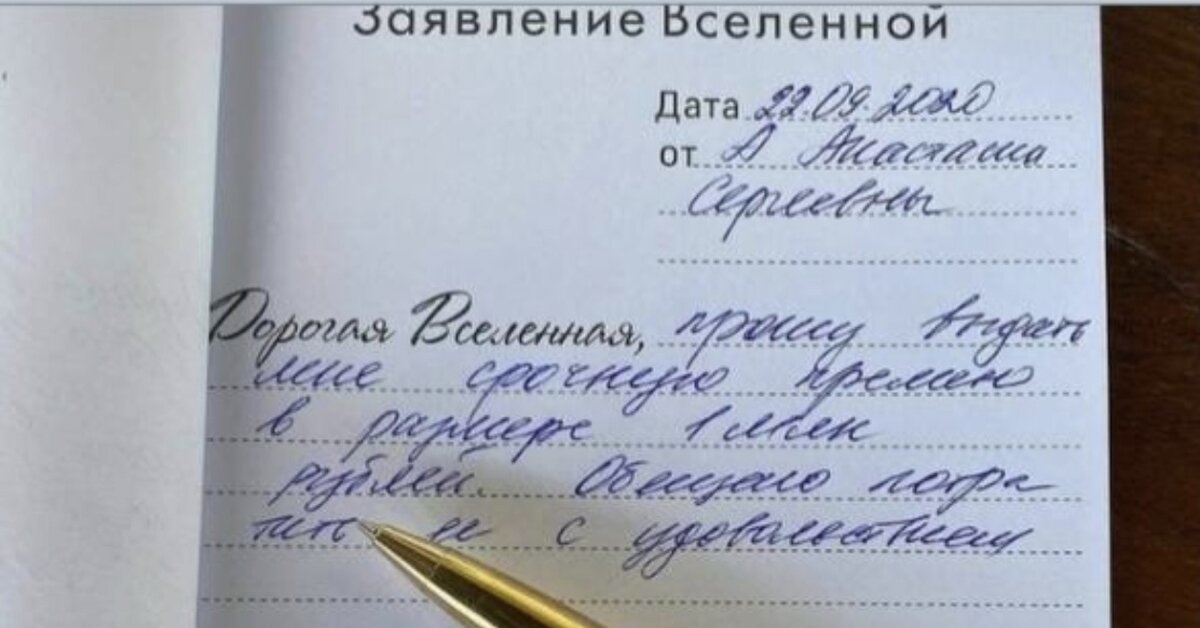 Заявление Вселенной
Дата 22.09.2020
от А Анастасии
Сергеевны
Дорогая Вселенная, прошу выдать
мне срочную премию
в размере 1 млн
рублей. Обещаю потра
тить ее с удовольствием